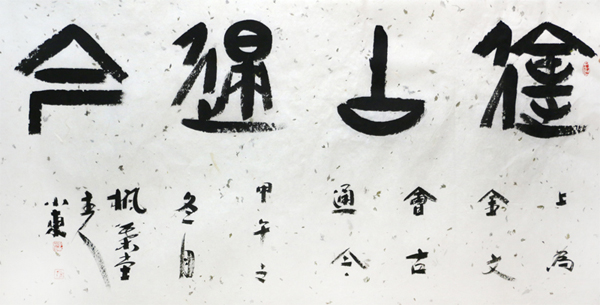 會古通今
上為
金文
會古
通今
甲午之
冬月
楓葉堂
主人
小東